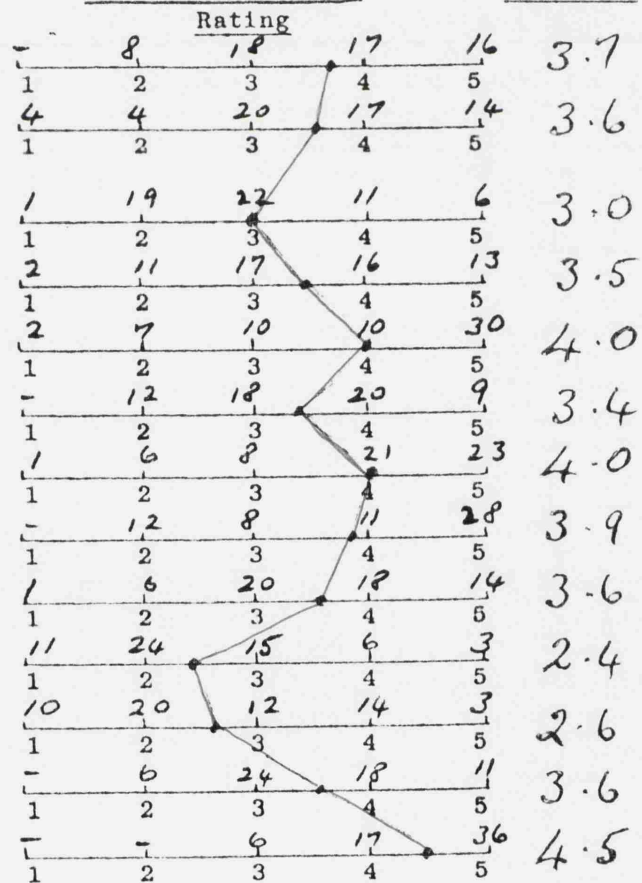 Rating
- 8 18 17 16 3.7
1 2 3 4 5
4 4 20 17 14 3.6
1 2 3 4 5
1 19 22 11 6 3.0
1 2 3 4 5
2 11 17 16 13 3.5
1 2 3 4 5
2 7 10 10 30 4.0
1 2 3 4 5
- 12 18 20 9 3.4
1 2 3 4 5
1 6 8 21 23 4.0
1 2 3 4 5
- 12 8 11 28 3.9
1 2 3 4 5
1 6 20 18 14 3.6
1 2 3 4 5
11 24 15 6 3 2.4
1 2 3 4 5
10 20 12 14 3 2.6
1 2 3 4 5
- 6 24 18 11 3.6
1 2 3 4 5
- - 6 17 36 4.5
1 2 3 4 5